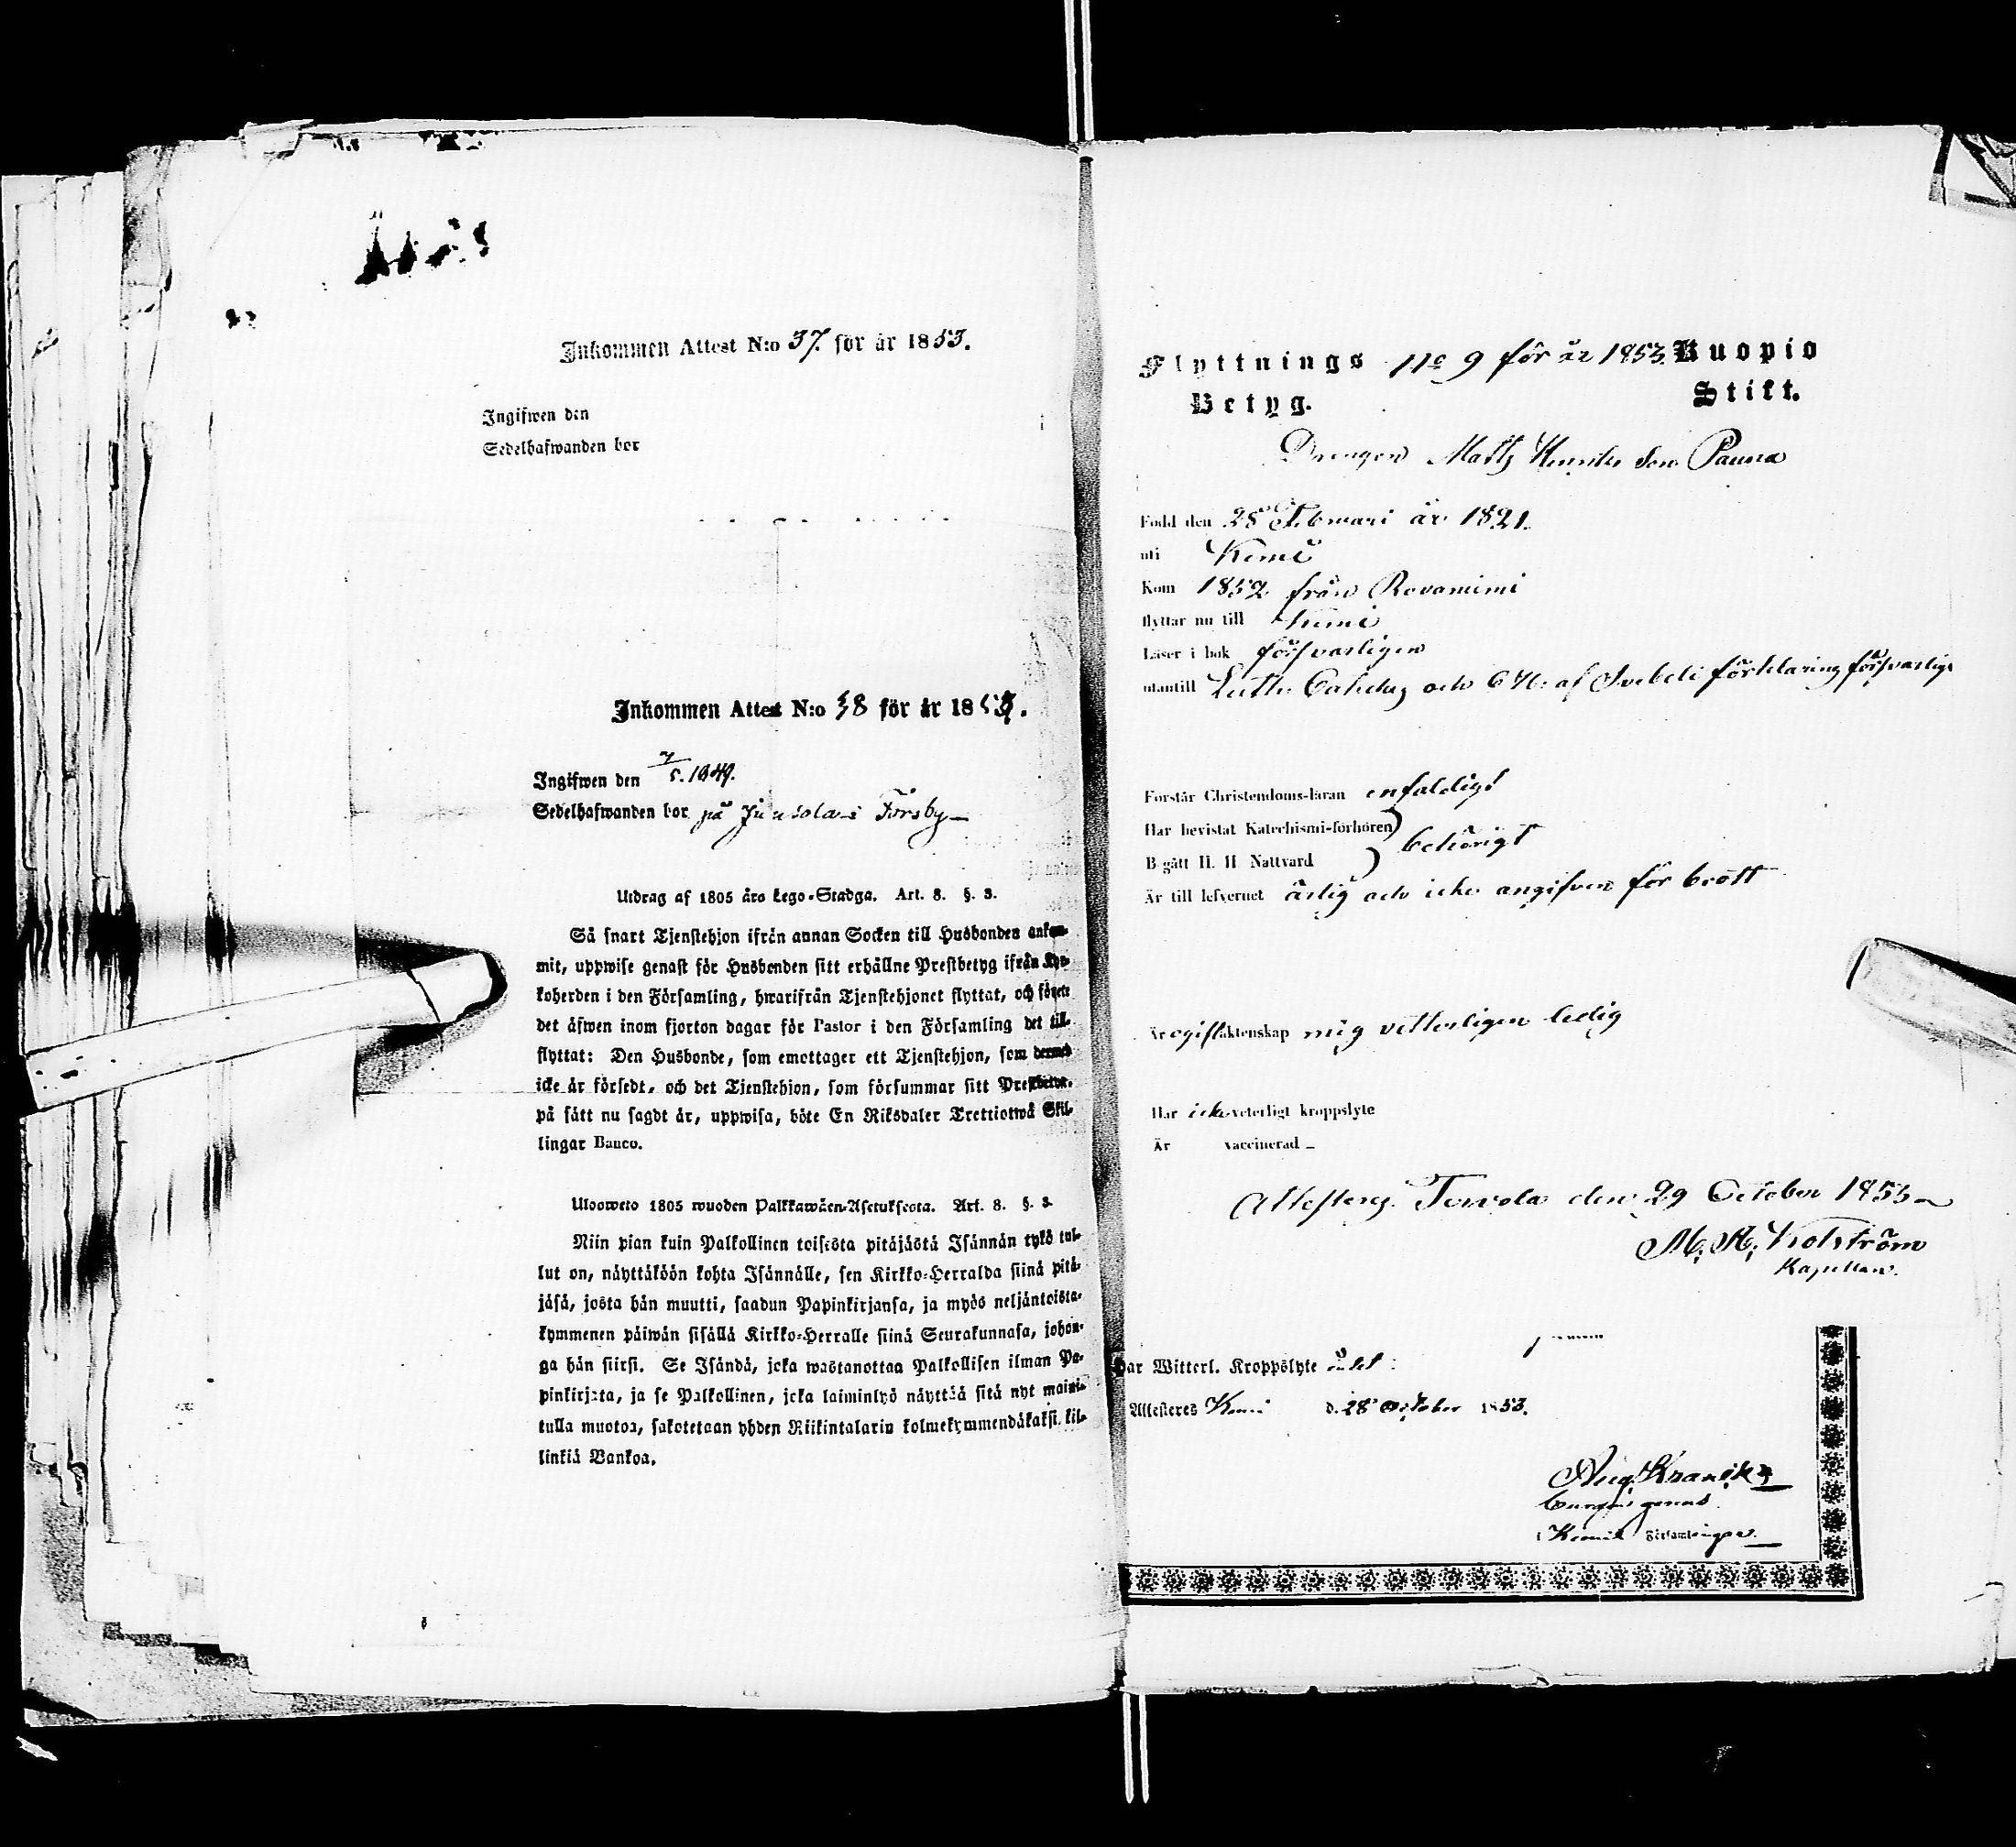 Inkommen Attest N:o 37. för år 1853.
Ingifwen den
Sedelhafwanden bor
Inkommen Attest N:o 38 för år 185
Ingifwen den 7/5. 1849.
Sedelhafwanden bor på Försby
Utdrag af 1805 års Lego-Stadga. Art. 8. §. 3.
Så snart Tjenstehjon ifrån annan Socken till Husbonden ankom-
mit, uppwise genast för Husbonden sitt erhållne Prestbetyg ifrån Kyr-
koherden i den Församling, hwarifrån Tjenstehjonet flyttat, och förete
det äfwen inom fjorton dagar för Pastor i den Församling det till-
flyttat: Den Husbonde, som emottager ett Tjenstehjon, som dermed
icke är försedt, och det Tjenstehjon, som försummar sitt Prestbetyg,
på sätt nu sagdt är, uppwisa, böte En Riksdaler Trettiotwå Skil-
lingar Banco.
Ulosweto 1805 wuoden Palkkawäen-Asetuksesta. Art. 8. §. 3.
Niin pian kuin Palkollinen toisesta pitäjästä Isännän tykö tul-
lut on, näyttäköön kohta Isännälle, sen Kirkko-Herralda siinä pitä-
jäsä, josta hän muutti, saadun Papinkirjansa, ja myös neljäntoista-
kymmenen päiwän sisällä Kirkko-Herralle siinä Seurakunnasa, johon-
ga hän siirsi. Se Isändä, joka wastanottaa Palkollisen ilman Pa-
pinkirjata, ja se Palkollinen, joka laiminlyö näyttää sitä nyt maini-
tulla muotoa, sakotetaan yhden Riikintalarin kolmekymmendäkaksi kil-
linkiä Bankoa.
Flyttnings No 9 för år 1853. Kuopio
Betyg. Stift.
Drengen Matts Henriks Son Pauna
Född den 28 Februari år 1821.
uti Kemi
Kom 1852 från Rovaniemi
flyttar nu till Kemi
Läser i bok försvarligen
utantill Luth. Cateches och 6 H. af Svebeli förklaring försvarlig
Förstår Christendoms-läran enfaldigt
Har bevistat Katechismi-förhören)
Begått H. H. Nattvard ) behörigt
Är till lefvernet ärlig och icke angifven för brott
Är ogift äktenskap mig vetterligen ledig
Har icke veterligt kroppslyte
Är vaccinerad –
Attesteras. Tervola den 29 October 1853
M. H. Holström
Kapellan.
Har Witterl. Kroppslyte intet:
Attesteres Kemi d. 28 October 1853.
Aug. Krank
i Kemi Församlingar.